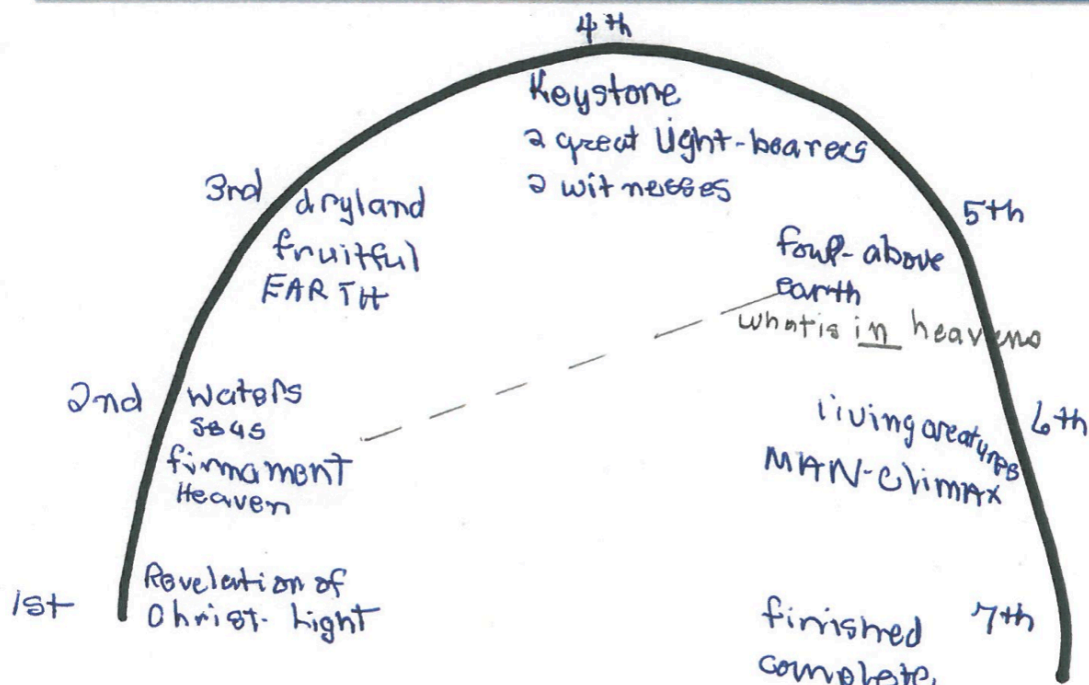 4th
Keystone
2 great Light-bearers
2 witnesses
3rd
dryland
fruitful
EARTH
5th
fowl-above
earth
what is in heavens
2nd
waters
seas
firmament
Heaven
6th
living creatures
MAN-climax
1st
Revelation of
Christ-Light
7th
finished
complete